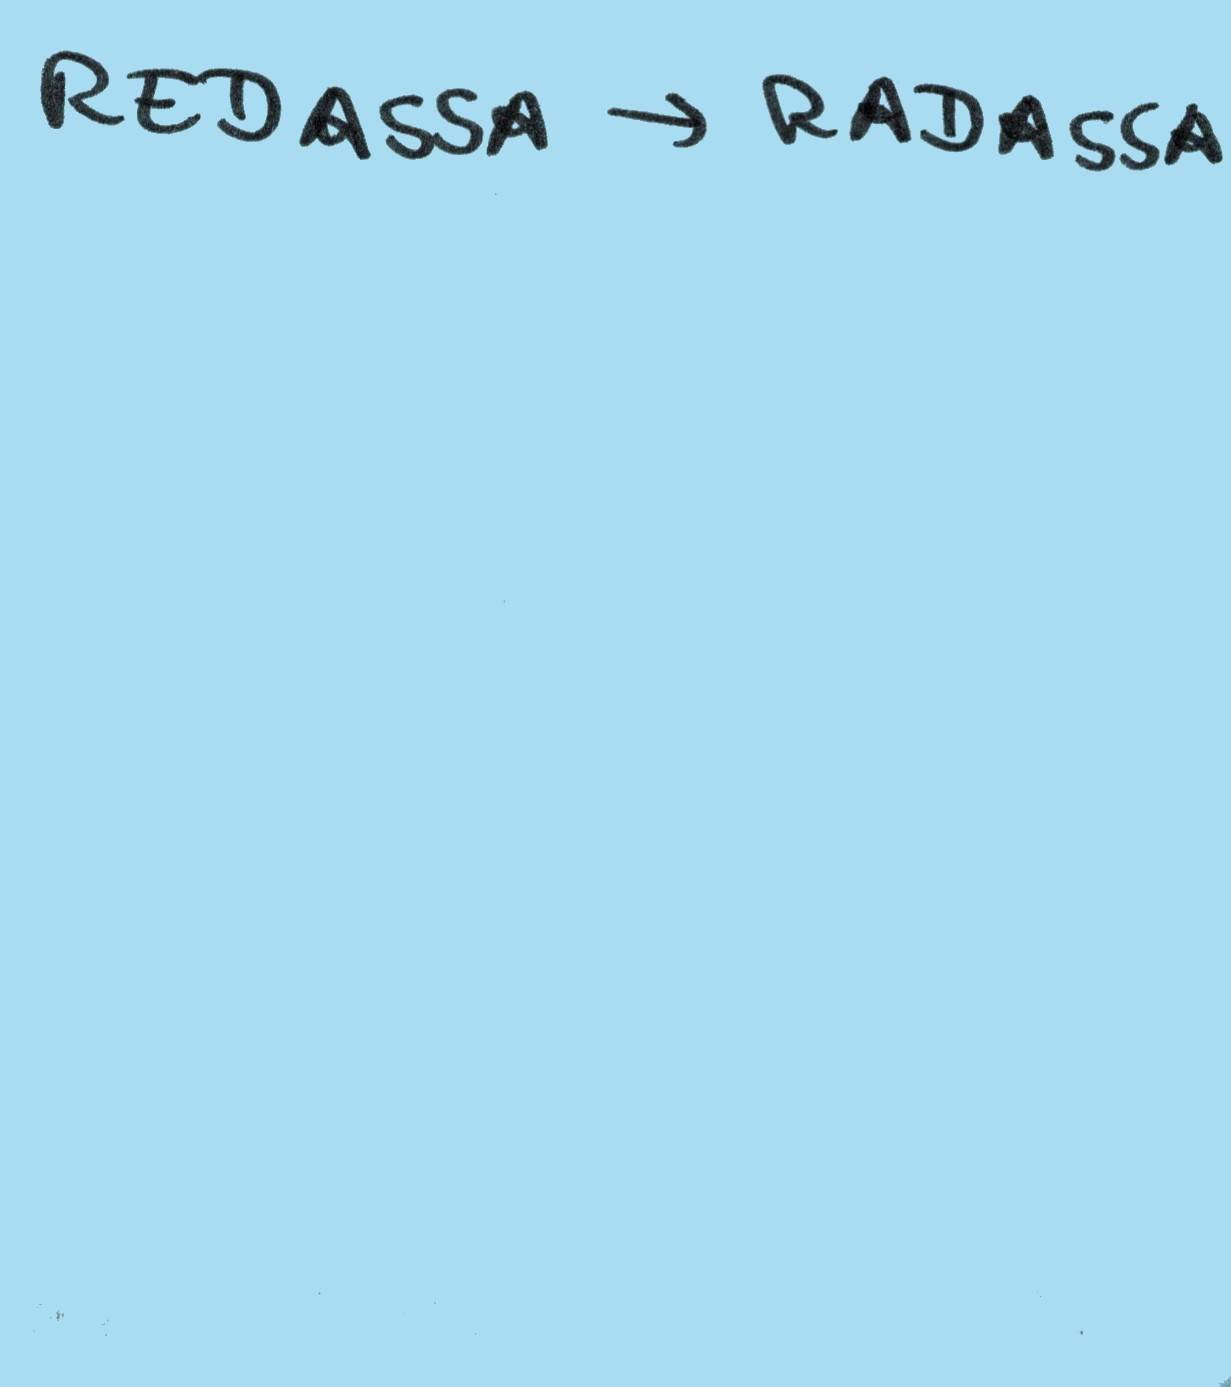 REDASSA → RADASSA